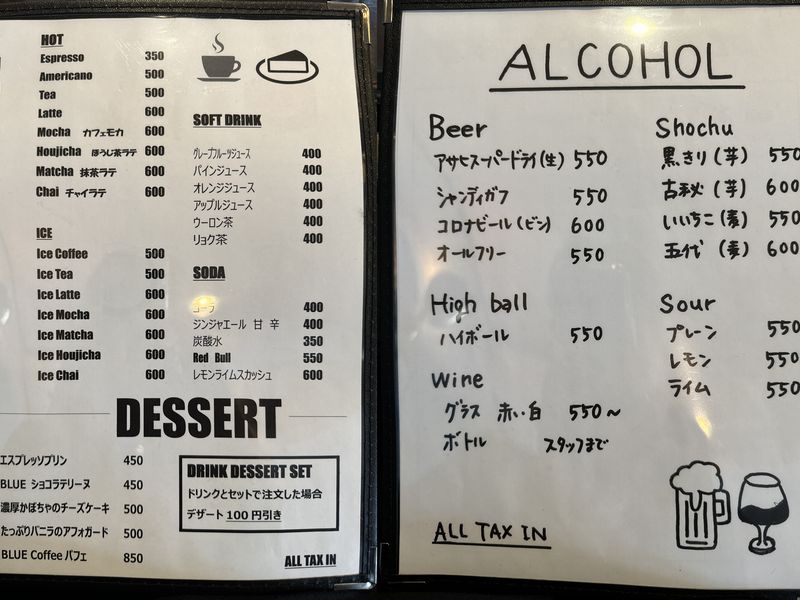 HOT
Espresso 350
Americano 500
Tea 500
Latte 600
Mocha カフェモカ 600
Houjicha ほうじ茶ラテ 600
Matcha 抹茶ラテ 600
Chai チャイラテ 600
ICE
Ice Coffee 500
Ice Tea 500
Ice Latte 600
Ice Mocha 600
Ice Matcha 600
Ice Houjicha 600
Ice Chai 600
SOFT DRINK
グレープフルーツジュース 400
パインジュース 400
オレンジジュース 400
アップルジュース 400
ウーロン茶 400
リョク茶 400
SODA
コーラ 400
ジンジャエール 甘 辛 400
炭酸水 350
Red Bull 550
レモンライムスカッシュ 600
DESSERT
エスプレッソプリン 450
BLUE ショコラテリーヌ 450
濃厚かぼちゃのチーズケーキ 500
たっぷりバニラのアフォガード 500
BLUE Coffee パフェ 850
DRINK DESSERT SET
ドリンクとセットで注文した場合
デザート 100 円引き
ALL TAX IN
ALCOHOL
Beer
アサヒスーパードライ(生) 550
シャンディガフ 550
コロナビール(ビン) 600
オールフリー 550
High ball
ハイボール 550
Wine
グラス 赤・白 550~
ボトル スタッフまで
Shochu
黒きり(芋) 550
古秘(芋) 600
いいちこ(麦) 550
五代(麦) 600
Sour
プレーン 550
レモン 550
ライム 550
ALL TAX IN